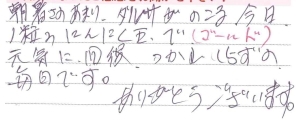 暑さのあまり、ダルサがのこる今日
1粒のにんにく玉で(ゴールド)
元気に回復、つかれしらずの
毎日です。
ありがとうございます。